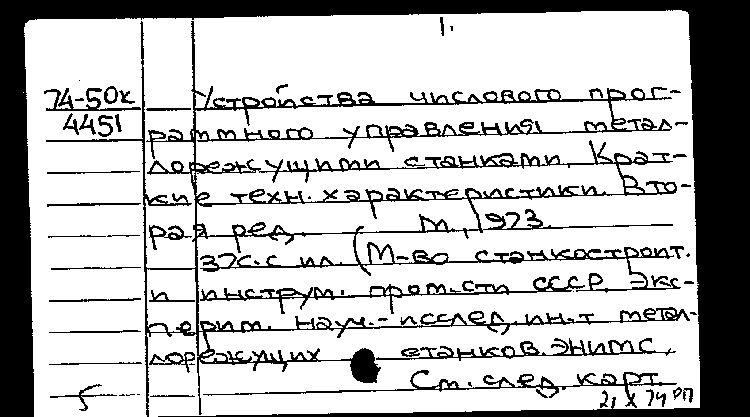 1.
74-50к Устройства числового прог-
4451 раммного управления метал-
лорежущими станками. Крат-
кие техн. характеристики. Вто-
рая ред. М., 1973.
37с. с ил. (М-во станкостроит.
и инструм. пром.сти СССР. Экс-
перим. науч.-исслед. ин.т метал-
лорежущих станков. ЭНИМС.
См. след. карт.
5 21 X 74 РП